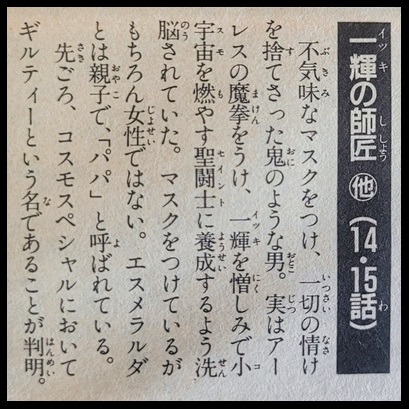 一輝の師匠 ㊀他 (14・15話)
不気味なマスクをつけ、一切の情け
を捨てさった鬼のような男。実はアー
レスの魔拳をうけ、一輝を憎しみで小
宇宙を燃やす聖闘士に養成するよう洗
脳されていた。マスクをつけているが
もちろん女性ではない。エスメラルダ
とは親子で、「パパ」と呼ばれている。
先ごろ、コスモスペシャルにおいて
ギルティーという名であることが判明。